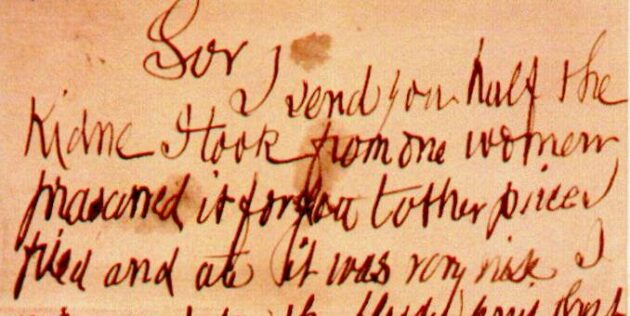 Sor
I send you half the
Kidne I took from one women
prasarved it for you tother piece I
fried and ate it was very nise I